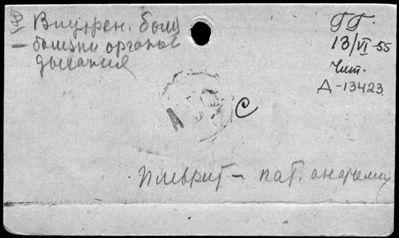 Внутрен. бол
– болезни органов
дыхания
ГГ.
13/VI 55
Чит.
Д-13423
А С
Плеврит – пат. анатомия